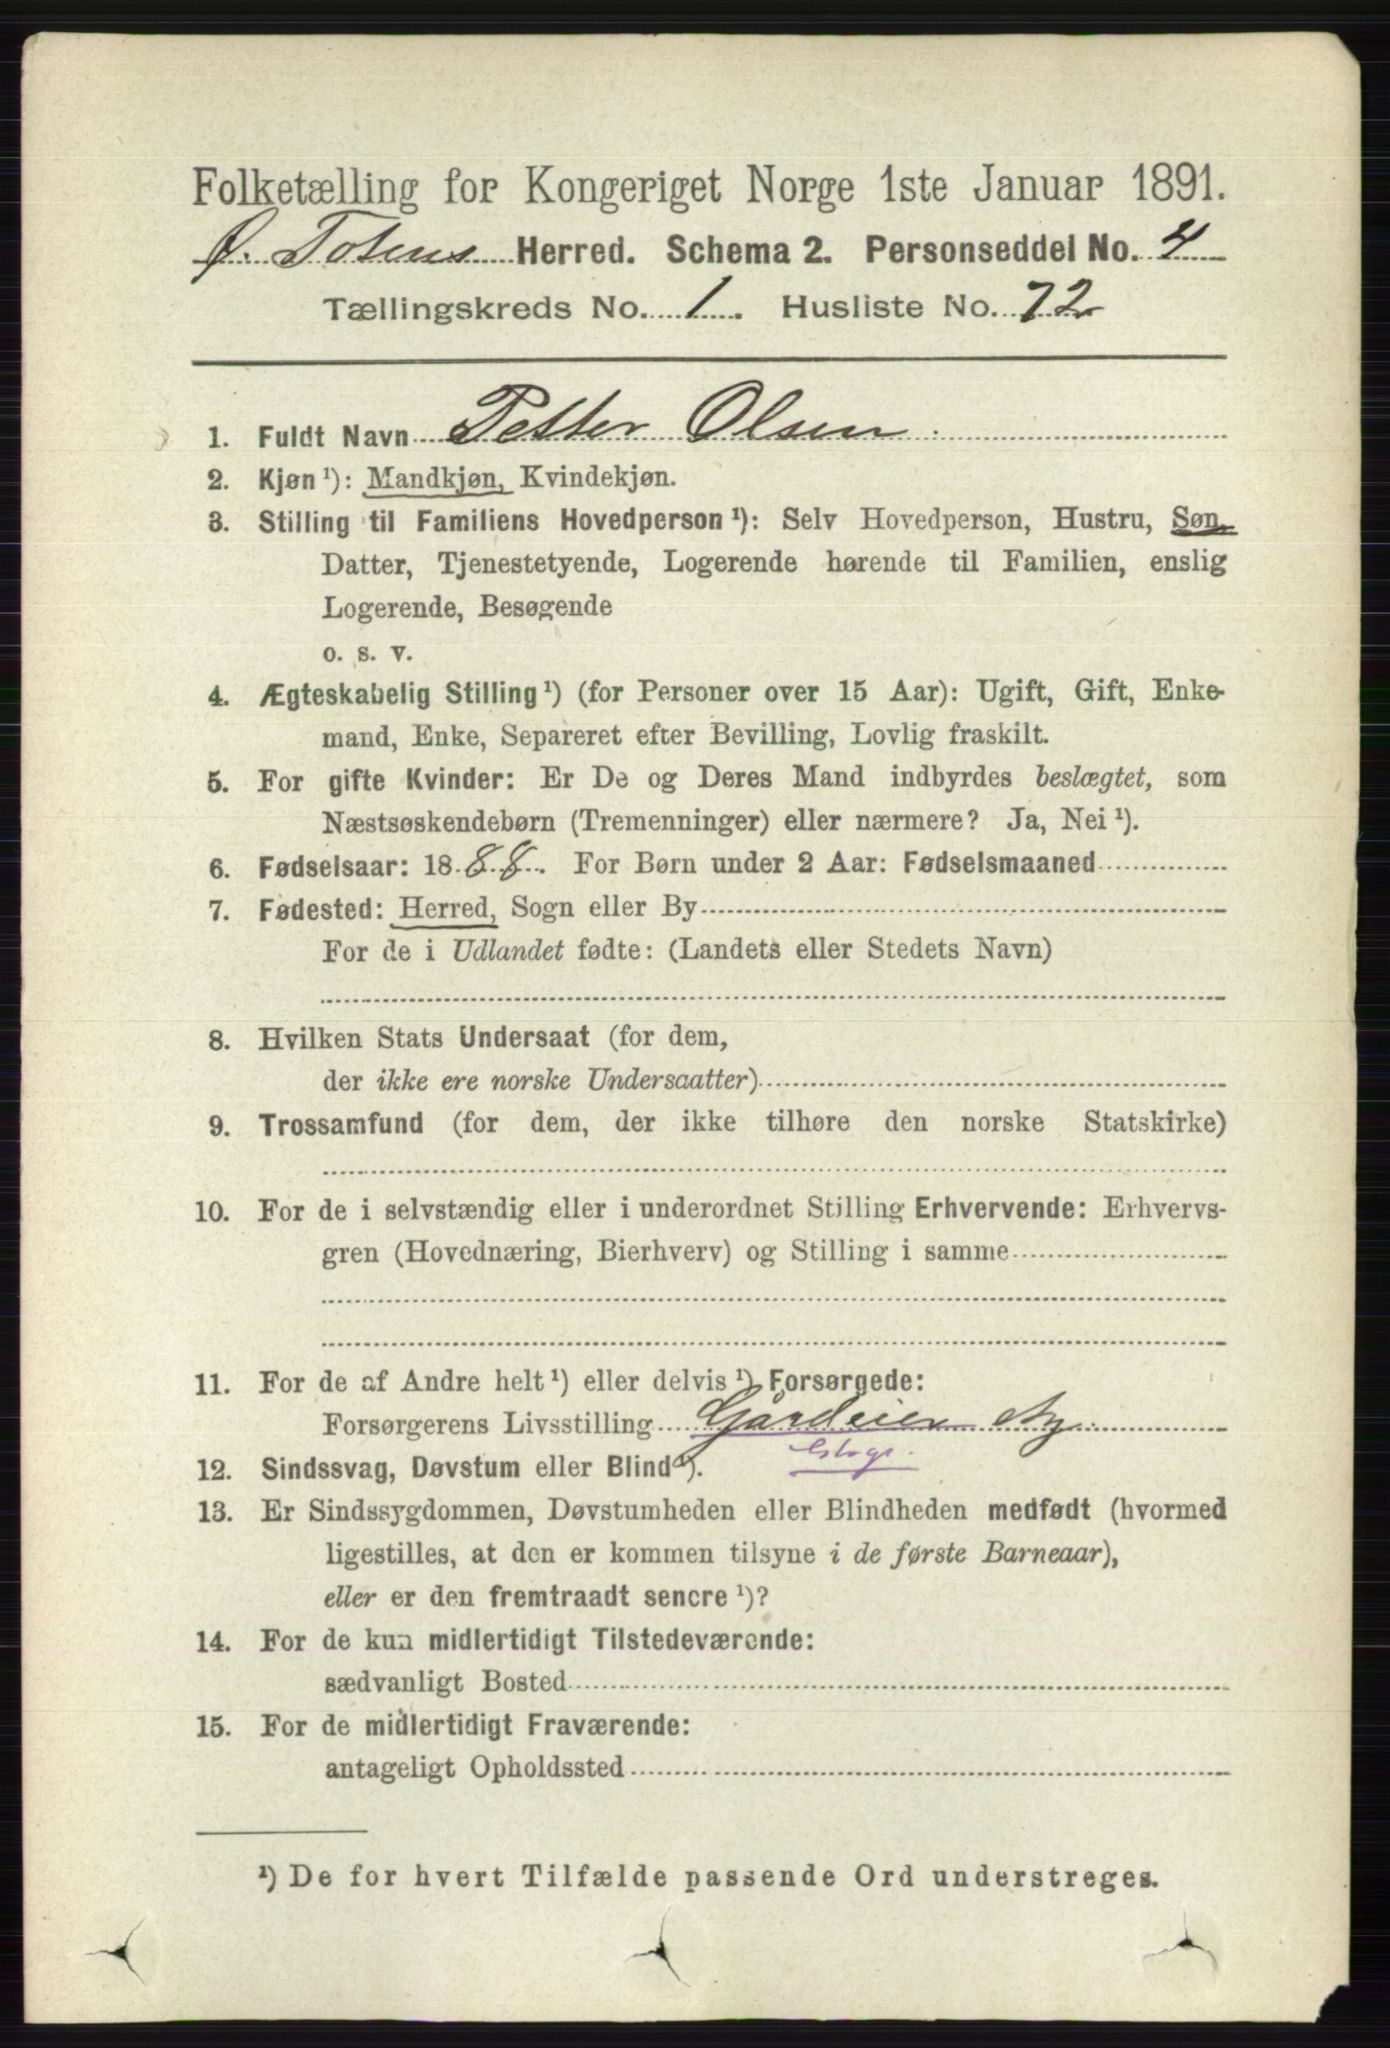 Folketælling for Kongeriget Norge 1ste Januar 1891.
Ø. Totens Herred. Schema 2. Personseddel No. 4
Tællingskreds No. 1. Husliste No. 72
1. Fuldt Navn Petter Olsen
2. Kjøn ¹): Mandkjøn, Kvindekjøn.
3. Stilling til Familiens Hovedperson ¹): Selv Hovedperson, Hustru, Søn,
Datter, Tjenestetyende, Logerende hørende til Familien, enslig
Logerende, Besøgende
o. s. v.
4. Ægteskabelig Stilling ¹) (for Personer over 15 Aar): Ugift, Gift, Enke-
mand, Enke, Separeret efter Bevilling, Lovlig fraskilt.
5. For gifte Kvinder: Er De og Deres Mand indbyrdes beslægtet, som
Næstsøskendebørn (Tremenninger) eller nærmere? Ja, Nei ¹).
6. Fødselsaar: 1888. For Børn under 2 Aar: Fødselsmaaned
7. Fødested: Herred, Sogn eller By
For de i Udlandet fødte: (Landets eller Stedets Navn)
8. Hvilken Stats Undersaat (for dem,
der ikke ere norske Undersaatter)
9. Trossamfund (for dem, der ikke tilhøre den norske Statskirke)
10. For de i selvstændig eller i underordnet Stilling Erhvervende: Erhvervs-
gren (Hovednæring, Bierhverv) og Stilling i samme
11. For de af Andre helt ¹) eller delvis ¹) Forsørgede:
Forsørgerens Livsstilling Gårdeier
12. Sindssvag, Døvstum eller Blind ¹).
13. Er Sindssygdommen, Døvstumheden eller Blindheden medfødt (hvormed
ligestilles, at den er kommen tilsyne i de første Barneaar),
eller er den fremtraadt senere ¹)?
14. For de kun midlertidigt Tilstedeværende:
sædvanligt Bosted
15. For de midlertidigt Fraværende:
antageligt Opholdssted
¹) De for hvert Tilfælde passende Ord understreges.